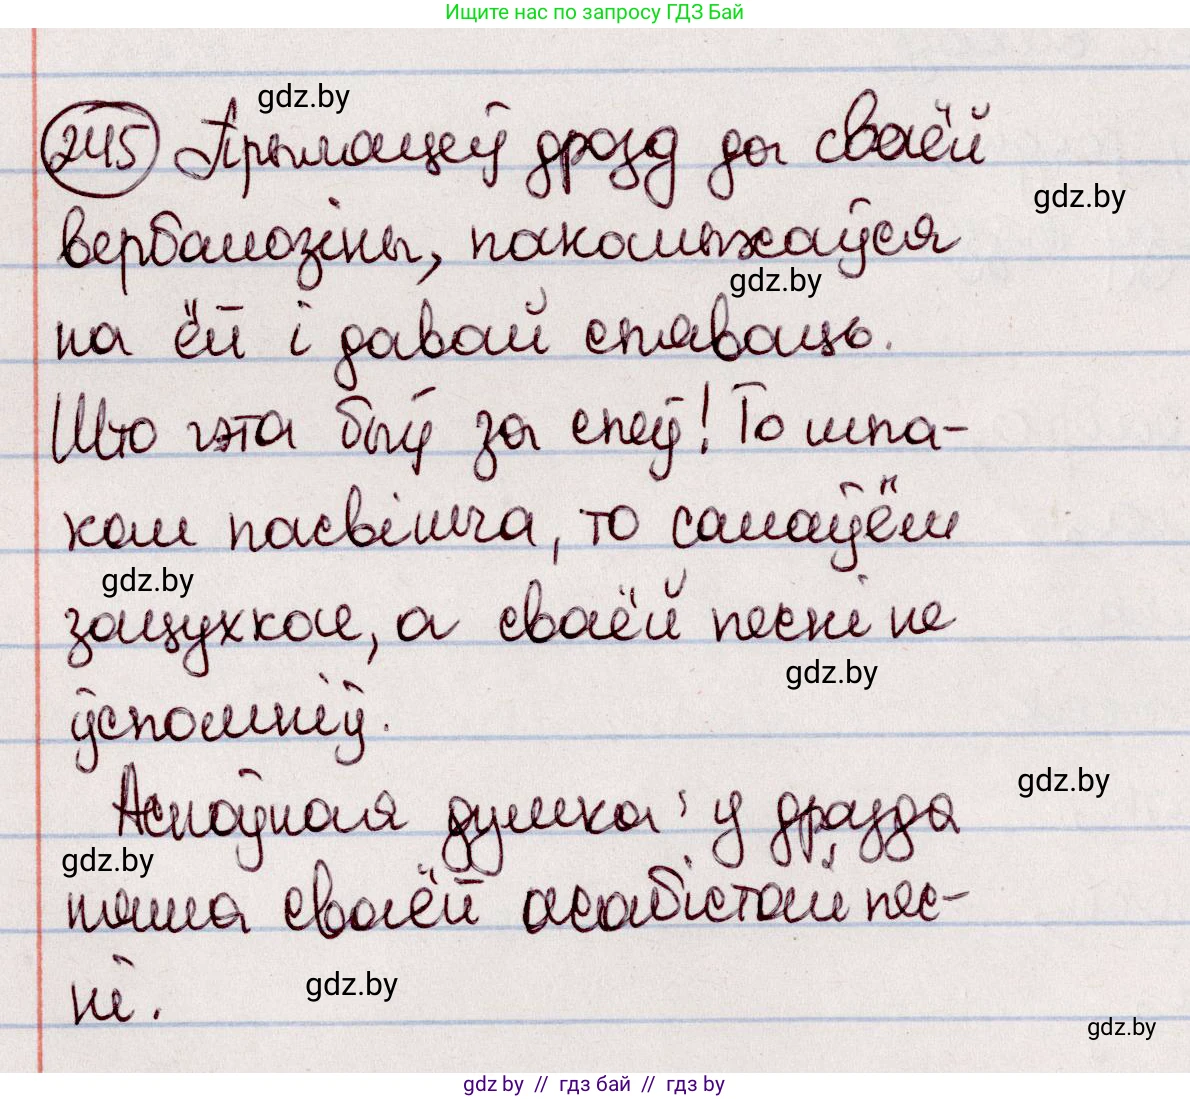 Ищите нас по запросу ГДЗ Бай
gdz.by
245 Прыляцеў дрозд да сваёй
gdz.by
вербалозіны, пакалыхаўся
gdz.by
на ёй і давай спяваць.
Што гэта быў за спеў! То шпа-
ком пасвішча, то салаўём
gdz.by
зацухкае, а сваёй песні не
gdz.by
ўспомніў.
gdz.by
Асноўная думка: у дразда
gdz.by
няма сваёй асабістай пес-
ні.
gdz.by
gdz.by
gdz.by // гдз бай // гдз by